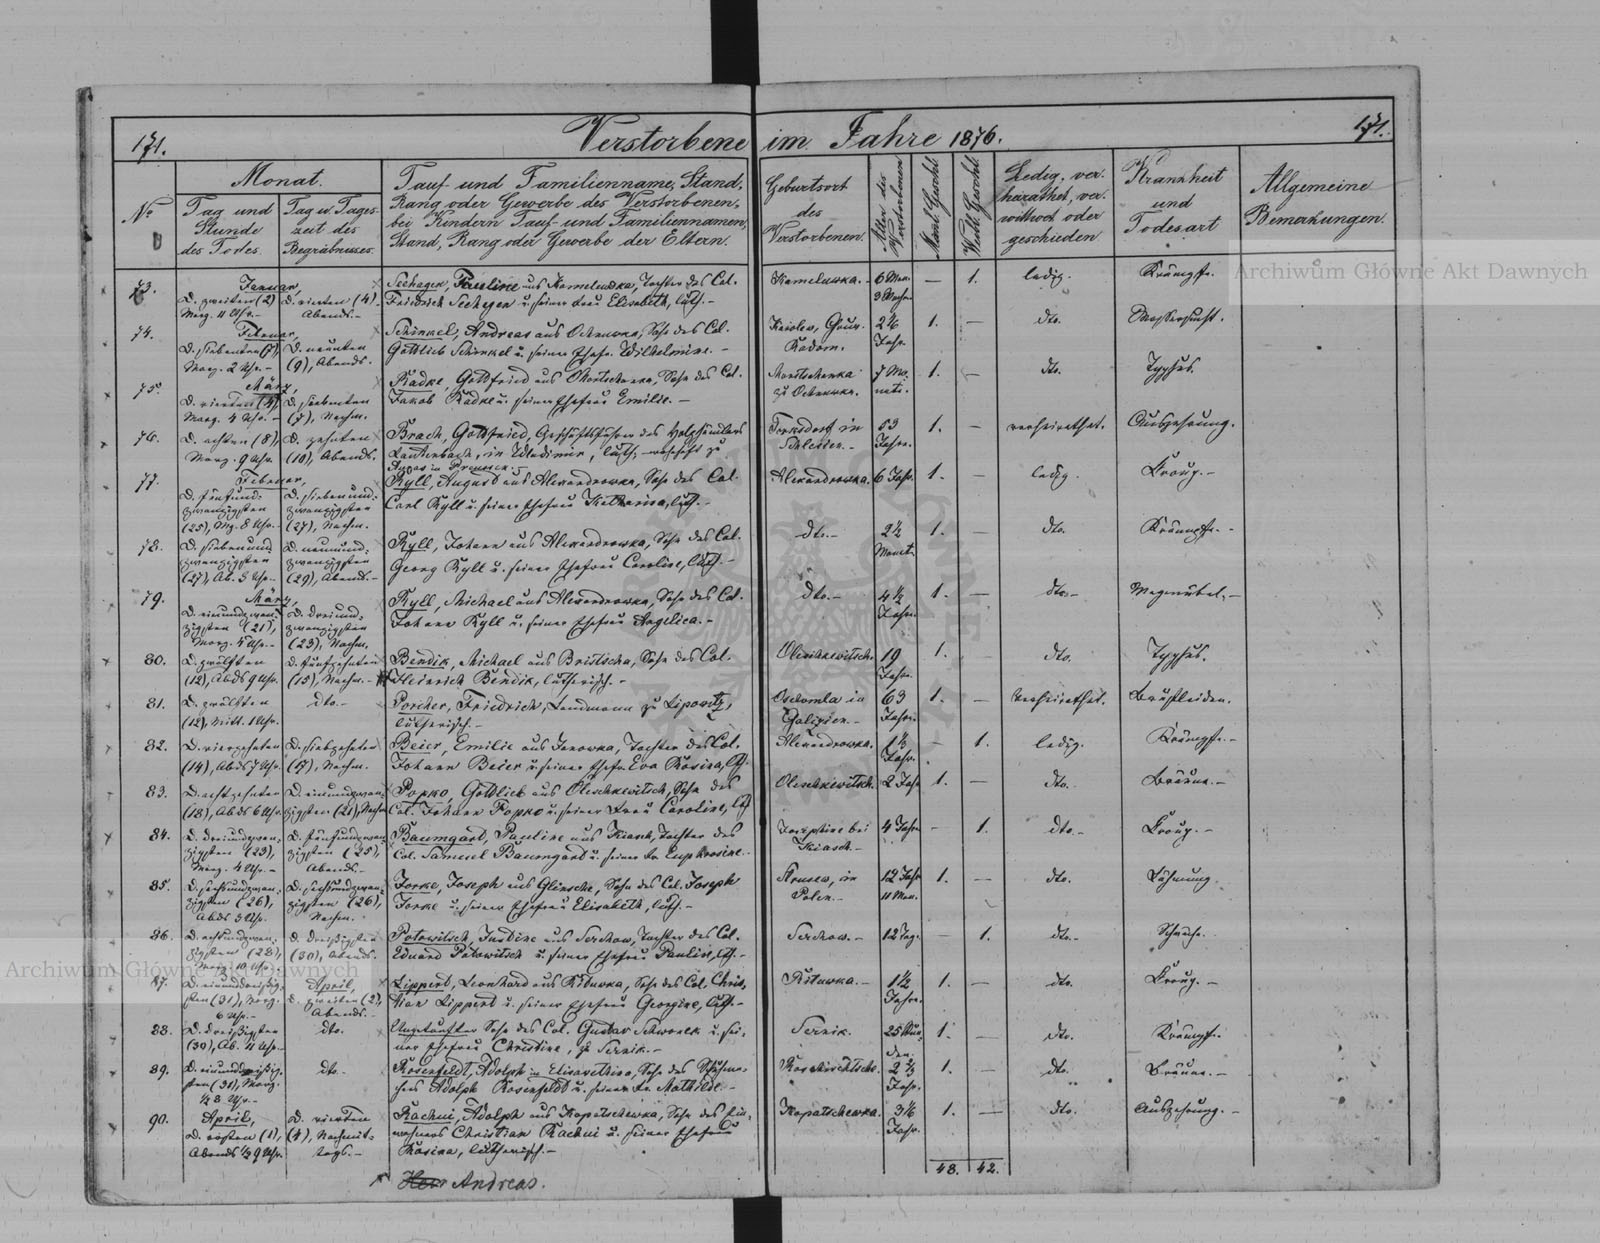 171.
Verstorbene im Jahre 1876.
171.
No
Monat.
Tag und Stunde des Todes.
Tag u. Tages-zeit des Begräbnisses.
Tauf- und Familienname, Stand,
Rang oder Gewerbe des Verstorbenen,
bei Kindern Tauf- und Familiennamen,
Stand, Rang oder Gewerbe der Eltern.
Geburtsort des Verstorbenen.
Alter des Verstorbenen
Männl. Geschl.
Weibl. Geschl.
Ledig, ver-
heirathet, ver-
wittwet oder
geschieden
Krankheit und Todesart
Allgemeine Bemerkungen.
73.
Januar,
D. zweiten (2) Morg. 11 Uhr.-
D. vierten (4) Abends.-
Seehagen, Pauline aus Kameluwka, Tochter des Col.
Friedrich Seehagen u. seiner Frau Elisabeth, luth.-
Kameluwka.
6 Mon. 3 Woch.
—
1.
ledig.
Krämpfe.
74.
Februar,
D. siebenten (7) Morg. 2 Uhr.-
D. neunten (9), Abends.
Schinkel, Andreas aus Ostrowka, Sohn des Col.
Gottlieb Schinkel u. seiner Ehefr. Wilhelmine.-
Radom.
Jahr.
1.
—
dto.
Wassersucht.
75.
März,
D. vierten (4), Morg. 4 Uhr.-
D. siebenten (7), Nachm.
Radke, Gottfried aus Sohn des Col.
Jakob Radke u. seiner Ehefrau Emilie.-
zu Ostrowka.
7 Mo-nate.
1.
—
dto.
Typhus.
76.
D. achten (8), Morg. 9 Uhr.
D. zehnten (10), Abends.
Brach, Gottfried, Geschäftsführer des Holzhändlers
Lautenbach, in Wladimir, luth,
in Preussen.-
in Schlesien.-
63 Jahre.
1.
—
verheirathet.
Auszehrung.
77.
Februar,
D. fünfund-zwanzigsten (25), Mg. 8 Uhr.
D. siebenund-zwanzigsten (27), Nachm.
Ryll, August aus Alexandrowka, Sohn des Col.
Carl Ryll u. seiner Ehefrau Katharina, luth.-
Alexandrowka.
6 Jahr.
1.
—
ledig
Kroup.-
78.
D. siebenund-zwanzigsten (27), Ab. 5 Uhr.-
D. neunund-zwanzigsten (29), Abends.-
Ryll, Johann aus Alexandrowka, Sohn des Col.
Georg Ryll u. seiner Ehefrau Caroline, luth.-
dto.-
2½ Monat.
1.
—
dto.
Krämpfe.-
79.
März,
D. einundzwan-zigsten (21), Morg. 4 Uhr.-
D. dreiund-zwanzigsten (23), Nachm.
Ryll, Michael aus Alexandrowka, Sohn des Col.
Johann Ryll u. seiner Ehefrau Angelica.-
dto.-
4½ Jahr.
1.
—
dto.-
Magenübel.-
80.
D. zwölften (12), Abds 9 Uhr.
D. fünfzehnten (15), Nachm.-
Bendik, Michael aus Bristscha, Sohn des Col.
Heinrich Bendik, lutherisch.-
Oleschkewitsch.
19 Jahr.
1.
dto.
Typhus.
81.
D. zwölften (12), Mitt. 1 Uhr.
dto.-
Porcher, Friedrich, Landmann zu Lipowitz,
lutherisch.-
in Galizien.-
63 Jahre.
1.
—
verheirathet.
Brustleiden.
82.
D. vierzehnten (14), Abds 7 Uhr.
D. siebzehnten (17), Nachm.
Beier, Emilie aus Janowka, Tochter des Col.
Johann Beier u. seiner Ehefr. Eva Rosina, lth.
Alexandrowka.
Jahr.
—
1.
ledig.
Krämpfe.-
83.
D. achtzehnten (18), Abds 6 Uhr.
D. einundzwan-zigsten (21), Nachm
Popko, Gottlieb aus Oleschkewitsch, Sohn des
Col. Johann Popko u. seiner Frau Caroline, lth
Oleschkewitsch.
2 Jahr
1.
—
dto.
Bräune.-
84.
D. dreiundzwan-zigsten (23), Morg. 4 Uhr.-
D. fünfundzwan-zigsten (25), Abends.-
Baumgart, Pauline aus Kiasch, Tochter des
Col. Samuel Baumgard u. seiner Fr. Euphrosine.-
Josephine bei Kiasch.-
4 Jahr
—
1.
dto.-
Kroup.-
85.
D. sechsundzwan-zigsten (26), Abds 3 Uhr.
D. sechsundzwan-zigsten (26), Nachm.
Jorke, Joseph aus Glinsche, Sohn des Col. Joseph
Jorke u. seiner Ehefrau Elisabeth, luth.-
in Polen.-
12 Jahr 11 Mon.
1.
—
dto.
Lähmung.
86.
D. achtundzwan-zigsten (28),
D. dreißigsten (30), Abends.
Potowitsch, Justine aus Serchow, Tochter des Col.
Eduard Potowitsch u. seiner Ehefrau Pauline, lth.-
Serchow.-
12 Tag.
—
1.
dto.-
Schwäche.-
87.
D. einunddreißig-sten (31), Morg. 6 Uhr.-
April,
d. zweiten (2), Abends.-
Lippert, Leonhard aus Rituwka, Sohn des Col. Chris-
tian Lippert u. seiner Ehefrau Georgine, luth.-
Rituwka.-
1½ Jahr.
1.
—
dto.
Kroup.-
88.
D. dreißigsten (30), Ab. 11 Uhr.-
dto.
Ungetaufter Sohn des Col. Gustav Schwonek u. sei-
ner Ehefrau Christine, zu Sernik.-
Sernik.
25 Stun-den.
1.
—
dto.
Krämpfe.
89.
D. einunddreißig-sten (31), Morg. ½ 8 Uhr.-
dto.-
Rosenfeldt, Adolph in Sohn des
Adolph Rosenfeldt u. seiner Fr. Mathilde.-
Jahr.
1.
—
dto.
Bräune.-
90.
April,
D. ersten (1), Abends ½ 9 Uhr.
D. vierten (4), Nachmit-tags.-
Rachui, Adolph aus Kopatschewka, Sohn des Ein-
wohners Christian Rachui u. seiner Ehefrau
Rosina, lutherisch.-
Kopatschewka.
Jahr.
1.
—
dto.
Auszehrung.-
48.
42.
Herr Andreas.
Archiwum Główne Akt Dawnych
Archiwum Główne Akt Dawnych